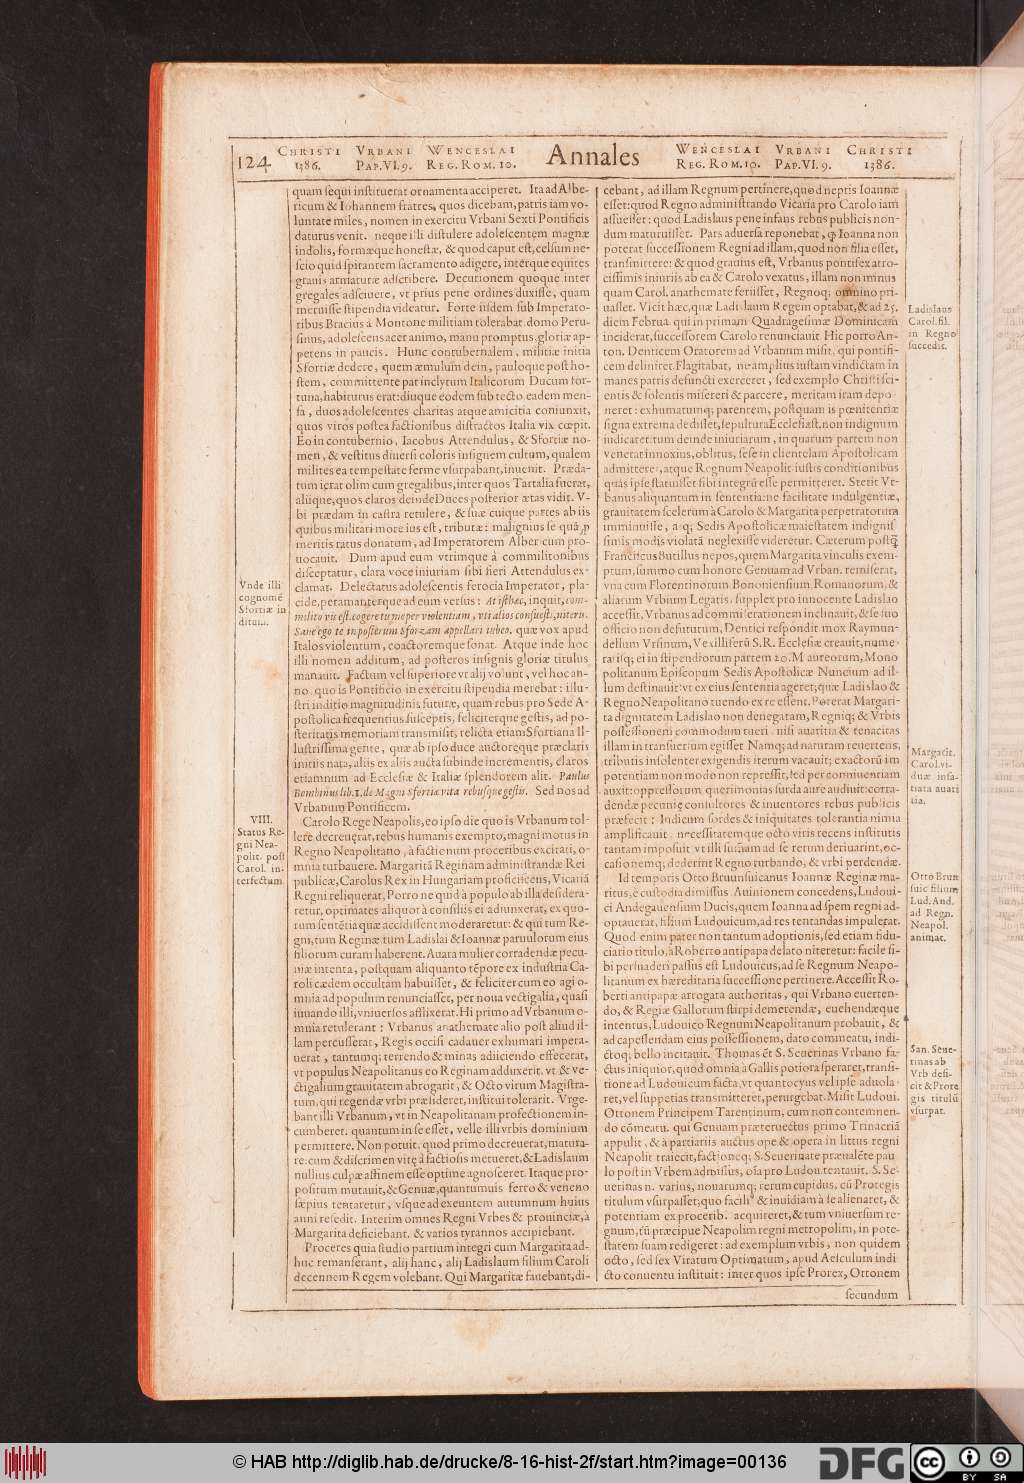 124 CHRISTI 1386. VRBANI PAP. VI. 9. WENCESLAI REG. ROM. 10. Annales WENCESLAI REG. ROM. 10. VRBANI PAP. VI. 9. CHRISTI 1386.
quam sequi instituerat ornamenta acciperet. Ita ad Albe-
ricum & Iohannem fratres, quos dicebam, patris iam vo-
luntate miles, nomen in exercitu Vrbani Sexti Pontificis
daturus venit. neque illi distulere adolescentem magnæ
indolis, formæque honestæ, & quod caput est, celsum ne-
scio quid spirantem sacramento adigere, interque equites
grauis armaturæ adscribere. Decurionem quoque inter
gregales adsciuere, vt prius pene ordines duxisse, quam
meruisse stipendia videatur. Forte iisdem sub Imperato-
ribus Bracius à Montone militiam tolerabat. domo Peru-
sinus, adolescens acer animo, manu promptus, gloriæ ap-
petens in paucis. Hunc contubernalem, militiæ initia
Sfortiæ dedere, quem æmulum dein, pauloque post ho-
stem, committente par inclytum Italicorum Ducum for-
tuna, habiturus erat: diuque eodem sub tecto, eadem men-
sa, duos adolescentes charitas atque amicitia coniunxit,
quos viros postea factionibus distractos Italia vix cœpit.
Eo in contubernio, Iacobus Attendulus, & Sfortiæ no-
men, & vestitus diuersi coloris insignem cultum, qualem
milites ea tempestate ferme vsurpabant, inuenit. Præda-
tum ierat olim cum gregalibus, inter quos Tartalia fuerat,
aliique, quos claros deinde Duces posterior ætas vidit. V-
bi prædam in castra retulere, & suæ cuique partes ab iis
quibus militari more ius est, tributæ: malignius se quã p
meritis ratus donatum, ad Imperatorem Alber cum pro-
uocauit. Dum apud eum vtrimque à commilitonibus
disceptatur, clara voce iniuriam sibi fieri Attendulus ex-
clamat. Delectatus adolescentis ferocia Imperator, pla-
cide, peramanterque ad eum versus: At isthæc, inquit, com-
milito vis est. cogere tu me per violentiam, vti alios consuesti, niteris.
Sane ergo te in posterum Sforzam appellari iubeo. quæ vox apud
Italos violentum, coactoremque sonat. Atque inde hoc
illi nomen additum, ad posteros insignis gloriæ titulus
manauit. Factum vel superiore vt alij volunt, vel hoc an-
no, quo is Pontificio in exercitu stipendia merebat: illu-
stri inditio magnitudinis futuræ, quam rebus pro Sede A-
postolica frequentius susceptis, feliciterque gestis, ad po-
steritatis memoriam transmisit, relicta etiam Sfortiana Il-
lustrissima gente, quæ ab ipso duce auctoreque præclaris
initiis nata, aliis ex aliis aucta subinde incrementis, claros
etiamnum ad Ecclesiæ & Italiæ splendorem alit. Paulus
Bombinus lib. 1. de Magni Sfortia vita rebusque gestis. Sed nos ad
Vrbanum Pontificem.
Carolo Rege Neapolis, eo ipso die quo is Vrbanum tol-
lere decreuerat, rebus humanis exempto, magni motus in
Regno Neapolitano, à factionum proceribus excitati, o-
mnia turbauere. Margaritã Reginam administrandæ Rei
publicæ, Carolus Rex in Hungariam proficiscens, Vicariã
Regni reliquerat, Porro ne quid à populo ab illa desidera-
retur, optimates aliquot à consiliis ei adiunxerat, ex quo-
rum sentētia quæ accidissent moderaretur: & qui tum Re-
gni, tum Reginæ tum Ladislai & Ioannæ paruulorum eius
filiorum curam haberent. Auara mulier corradendæ pecu-
niæ intenta, postquam aliquanto tēpore ex industria Ca-
roli cædem occultam habuisset, & feliciter cum eo agi o-
mnia ad populum renunciasset, per noua vectigalia, quasi
iuuando illi, vniuersos afflixerat. Hi primo ad Vrbanum o-
mnia retulerant: Vrbanus anathemate alio post aliud il-
lam percusserat, Regis occisi cadauer exhumari impera-
uerat, tantumq; terrendo & minas adiiciendo effecerat,
vt populus Neapolitanus eo Reginam adduxerit, vt & ve-
ctigalium grauitatem abrogarit, & Octo virum Magistra-
tum, qui regendæ vrbi præsideret, institui tolerarit. Vrge-
bant illi Vrbanum, vt in Neapolitanam profectionem in-
cumberet. quantum in se esset, velle illi vrbis dominium
permittere. Non potuit, quod primo decreuerat, matura-
re: cum & discrimen vitę à factiosis metueret, & Ladislaum
nullius culpæ affinem esse optime agnosceret. Itaque pro-
positum mutauit, & Genuæ, quantumuis ferro & veneno
sæpius tentaretur, vsque ad exeuntem autumnum huius
anni resedit. Interim omnes Regni Vrbes & prouinciæ, à
Margarita deficiebant, & varios tyrannos accipiebant.
Proceres quia studio partium integri cum Margarita ad-
huc remanserant, alij hanc, alij Ladislaum filium Caroli
decennem Regem volebant. Qui Margaritæ fauebant, di-
Vnde illi
cognomē
Sfortiæ in
ditum.
VIII.
Status Re-
gni Nea-
polit. post
Carol. in-
terfectum.
cebant, ad illam Regnum pertinere, quod neptis Ioannæ
esset: quod Regno administrando Vicaria pro Carolo iam
assuesset: quod Ladislaus pene infans rebus publicis non-
dum maturuisset. Pars aduersa reponebat, q Ioanna non
poterat successionem Regni ad illam, quod non filia esset,
transmittere: & quod grauius est, Vrbanus pontifex atro-
cissimis iniuriis ab ea & Carolo vexatus, illam non minus
quam Carol. anathemate feriisset, Regnoq; omnino pri-
uasset. Vicit hæc, quæ Ladislaum Regem optabat, & ad 25.
diem Februa. qui in primam Quadragesimæ Dominicam
inciderat, successorem Carolo renunciauit Hic porro An-
ton. Denticem Oratorem ad Vrbanum misit, qui pontifi-
cem deliniret Flagitabat, ne amplius iustam vindictam in
manes patris defuncti exerceret, sed exemplo Christi sci-
entis & solentis misereri & parcere, meritam iram depo-
neret: exhumatumq; parentem, postquam is pœnitentiæ
signa extrema dedisset, sepultura Ecclesiast. non indignum
iudicaret: tum deinde iniuriarum, in quarum partem non
venerat innoxius, oblitus, sese in clientelam Apostolicam
admitteret, atque Regnum Neapolit iustis conditionibus
quas ipse statuisset sibi integrū esse permitteret. Stetit Vr-
banus aliquantum in sententia: ne facilitate indulgentiæ,
grauitatem scelerum à Carolo & Margarita perpetratorum
imminuisse, a q; Sedis Apostolicæ maiestatem indignis
simis modis violatã neglexisse videretur. Cæterum postq̃
Franciscus Butillus nepos, quem Margarita vinculis exem-
ptum, summo cum honore Genuam ad Vrban. remiserat,
vna cum Florentinorum Bononiensium Romanorum, &
aliarum Vrbium Legatis, supplex pro innocente Ladislao
accessit, Vrbanus ad commiserationem inclinauit, & se suo
officio non defuturum, Dentici respondit mox Raymun-
dellum Vrsinum, Vexilliferū S. R. Ecclesiæ creauit, nume-
ratisq; ei in stipendiorum partem 20. M aureorum, Mono
politanum Episcopum Sedis Apostolicæ Nuncium ad il-
lum destinauit: vt ex eius sententia ageret, quæ Ladislao &
Regno Neapolitano tuendo ex re essent. Poterat Margari-
ta dignitatem Ladislao non denegatam, Regniq; & Vrbis
possessioneni commodum tueri. nisi auaritia & tenacitas
illam in transuersum egisset Namq; ad naturam reuertens,
tributis insolenter exigendis iterum vacauit; exactorū im
potentiam non modo non repressit, sed per conniuentiam
auxit: oppressorum querimonias surda aure audiuit: corra-
dendæ pecunię consultores & inuentores rebus publicis
præfecit: Indicum sordes & iniquitates tolerantia nimia
amplificauit. necessitatemque octo viris recens institutis
tantam imposuit vt illi sum̃am ad se rerum deriuarint, oc-
casionemq; dederint Regno turbando, & vrbi perdendæ.
Id temporis Otto Brunsuicanus Ioannæ Reginæ ma-
ritus, è custodia dimissus Auinionem concedens, Ludoui-
ci Andegauensium Ducis, quem Ioanna ad spem regni ad-
optauerat, filium Ludouicum, ad res tentandas impulerat.
Quod enim pater non tantum adoptionis, sed etiam fidu-
ciario titulo, à Roberto antipapa delato niteretur: facile si-
bi persuaderi passus est Ludouicus, ad se Regnum Neapo-
litanum ex hæreditaria successione pertinere. Accessit Ro-
berti antipapæ arrogata authoritas, qui Vrbano euerten-
do, & Regiæ Gallorum stirpi demerendæ, euehendæque
intentus, Ludouico Regnum Neapolitanum probauit, &
ad capessendam eius possessionem, dato commeatu, indi-
ctoq; bello incitauit. Thomas ēt S. Seuerinas Vrbano fa-
ctus iniquior, quod omnia à Gallis potiora speraret, transi-
tione ad Ludouicum facta, vt quantocyus vel ipse aduola-
ret, vel suppetias transmitteret, perurgebat. Misit Ludoui.
Ottonem Principem Tarentinum, cum non contemnen-
do cōmeatu. qui Genuam præteruectus primo Trinacriã
appulit, & à partiariis auctus ope & opera in littus regni
Neapolit traiecit, factioneq; S. Seuerinate præualēte pau
lo post in Vrbem admissus, oīa pro Ludou. tentauit. S. Se-
uerinas n. varius, nouarumq; rerum cupidus, cū Protegis
titulum vsurpasset, quo facili9 & inuidiam à se alienaret, &
potentiam ex procerib. acquireret, & tum vniuersum re-
gnum, tū præcipue Neapolim regni metropolim, in pote-
statem suam redigeret: ad exemplum vrbis, non quidem
octo, sed sex Viratum Optimatum, apud Aesculum indi
cto conuentu instituit: inter quos ipse Prorex, Ottonem
secundum
Ladislaus
Carol. fil.
in Regno
succedit.
Margarit.
Carol. vi-
duæ insa-
tiata auari
tia.
Otto Brun
suic filium
Lud. And.
ad Regn.
Neapol.
animat.
San. Seue-
rinas ab
Vrb defi-
cit & Prore
gis titulū
vsurpat.
© HAB http://diglib.hab.de/drucke/8-16-hist-2f/start.htm?image=00136
DFG
cc BY SA